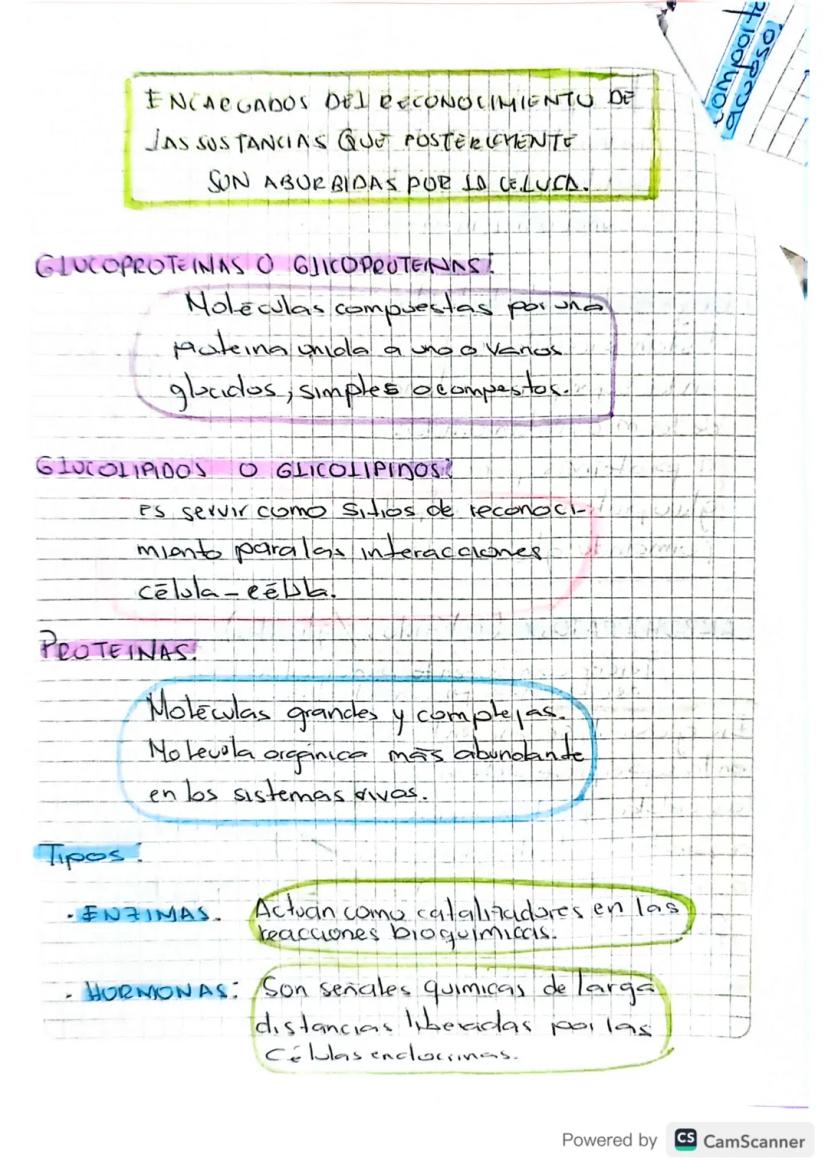 comporta
acuoso.
ENCARGADOS DEL RECONOCIMIENTO DE
LAS SUSTANCIAS QUE POSTERIEMENTE
SON ABURBIDAS POR LA CELULA.
GLUCOPROTEINAS O GLICOPROTEINAS:
Moléculas compuestas por una
proteina unida a uno o varios
glucidos, simples o compestos.
GLUCOLIPIDOS O GLICOLIPIDOS:
es servir como sitios de reconoci-
miento para las interacciones
célula-célula.
PROTEINAS:
Moléculas grandes y complejas.
Molecula orgánica más abundante
en los sistemas vivos.
Tipos:
. ENZIMAS. Actúan como catalizadores en las
reacciones bioquimicas.
. HORMONAS: Son señales químicas de larga
distancias liberadas por las
Células endocrinas.
Powered by CS CamScanner